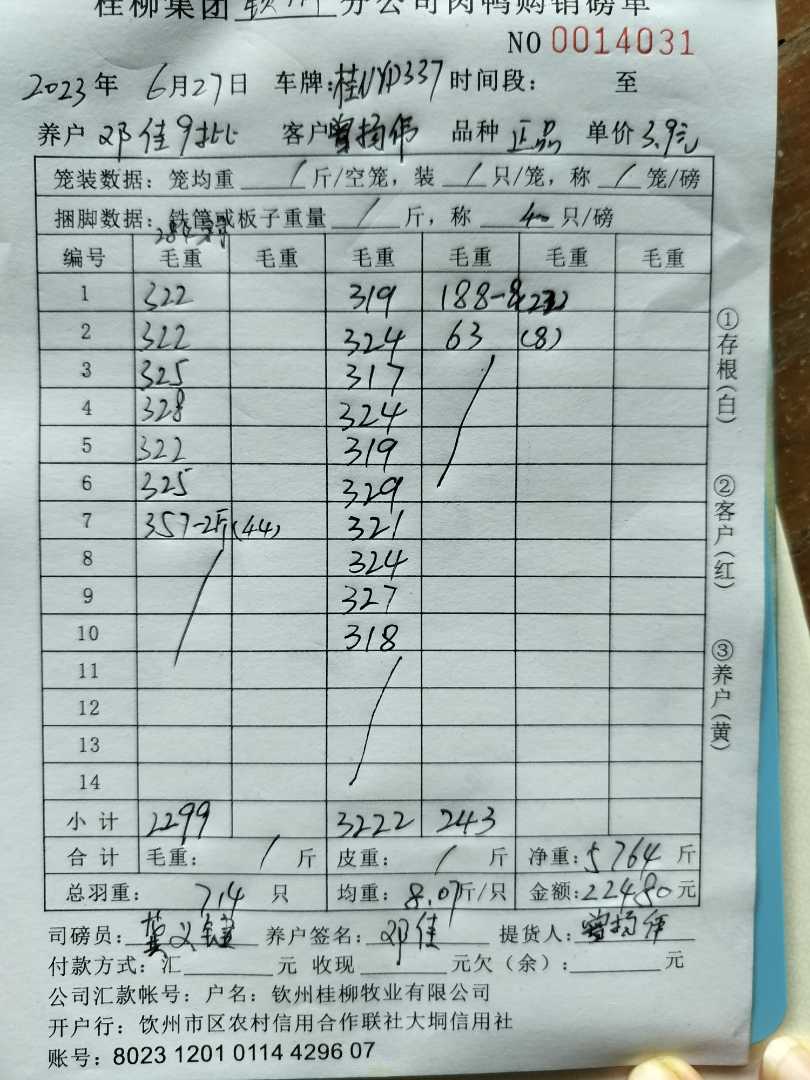 桂柳集团 钦州 分公司肉鸭购销磅单
NO 0014031
2023年 6月27日 车牌:桂NYD337 时间段: 至
养户 邓佳9批 客户曾扬伟 品种 正品 单价 3.9元
笼装数据: 笼均重 / 斤/空笼, 装 / 只/笼, 称 / 笼/磅
捆脚数据: 铁筐或板子重量 / 斤, 称 40 只/磅
编号 毛重 毛重 毛重 毛重 毛重 毛重
1 322 319 188-8(22)
2 322 324 63 (8)
3 325 317
4 328 324
5 322 319
6 325 329
7 357-2斤(44) 321
8 324
9 327
10 318
11
12
13
14
小计 2299 3222 243
合计 毛重: / 斤 皮重: / 斤 净重:5764 斤
总羽重: 714 只 均重: 8.07斤/只 金额:22480元
司磅员: 养户签名: 邓佳 提货人:曾扬伟
付款方式:汇 元 收现 元欠(余): 元
公司汇款帐号: 户名: 钦州桂柳牧业有限公司
开户行: 钦州市区农村信用合作联社大垌信用社
账号: 8023 1201 0114 4296 07
①存根(白)
②客户(红)
③养户(黄)